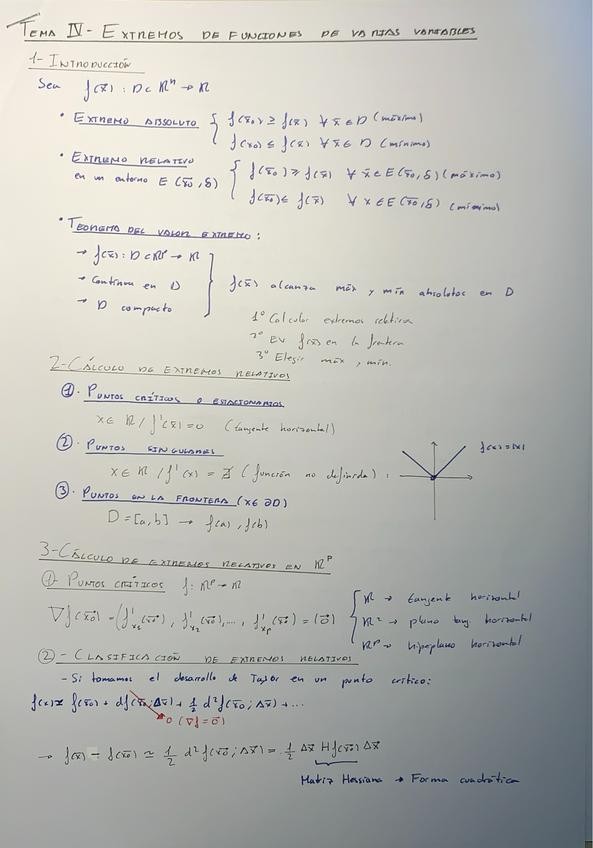 TEMA IV - EXTREMOS DE FUNCIONES DE VARIAS VARIABLES
1- INTRODUCCIÓN
Sea f(x̄) : D ⊂ ℝⁿ → ℝ
• EXTREMO ABSOLUTO { f(x̄₀) ≥ f(x̄) ∀ x̄ ∈ D (máximo)
f(x₀) ≤ f(x̄) ∀ x̄ ∈ D (mínimo)
• EXTREMO RELATIVO { f(x̄₀) ≥ f(x̄) ∀ x̄ ∈ E(x̄₀, δ) (máximo)
en un entorno E(x̄₀, δ) f(x̄₀) ≤ f(x̄) ∀ x ∈ E(x̄₀, δ) (mínimo)
• TEOREMA DEL VALOR EXTREMO :
→ f(x̄) : D ⊂ ℝᵖ → ℝ
→ Continua en D } f(x̄) alcanza máx y mín absolutos en D
→ D compacto
1º Calcular extremos relativos
2º Ev f(x̄) en la frontera
3º Elegir máx, mín.
2- CÁLCULO DE EXTREMOS RELATIVOS
①. PUNTOS CRÍTICOS O ESTACIONARIOS
x ∈ ℝ / f'(x) = 0 (tangente horizontal)
②. PUNTOS SINGULARES
f(x) = |x|
x ∈ ℝ / f'(x) = ∄ (función no definida) :
③. PUNTOS EN LA FRONTERA (x ∈ ∂D)
D = [a, b] → f(a), f(b)
3- CÁLCULO DE EXTREMOS RELATIVOS EN ℝᵖ
① - PUNTOS CRÍTICOS f: ℝᵖ → ℝ
∇f(x⃗₀) = (f'ₓ₁(x⃗₀), f'ₓ₂(x⃗₀), ..., f'ₓₚ(x⃗₀)) = (0⃗) { ℝ → tangente horizontal
ℝ² → plano tang. horizontal
ℝᵖ → hiperplano horizontal
② - CLASIFICACIÓN DE EXTREMOS RELATIVOS
- Si tomamos el desarrollo de Taylor en un punto crítico:
f(x) ≈ f(x̄₀) + df(x̄₀; Δx̄) + ½ d²f(x̄₀; Δx̄) + ...
0 (∇f = 0⃗)
→ f(x̄) - f(x̄₀) ≃ ½ d²f(x̄₀; Δx̄) = ½ Δx̄ Hf(x̄₀) Δx̄
Matriz Hessiana → Forma cuadrática